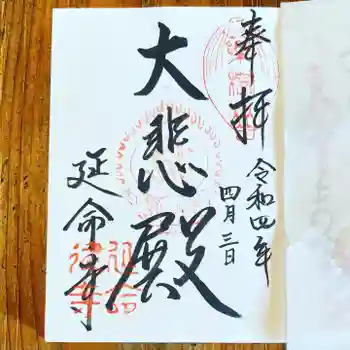 奉拝
令和四年
四月三日
大悲殿
延命寺